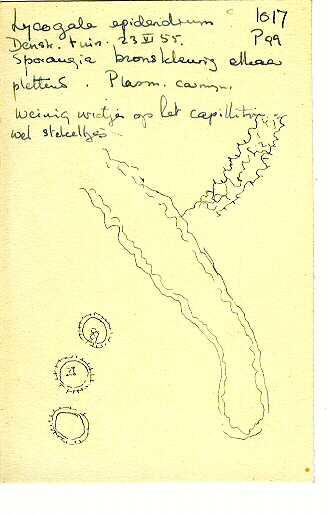 Lycogala epidendrum
1017
Densk. tuin. 23 VI 55.
P99
Sporangia bronskleurig elkaar
plettend. Plasm.
Weinig wratjes op het capillitium
wel stekeltjes